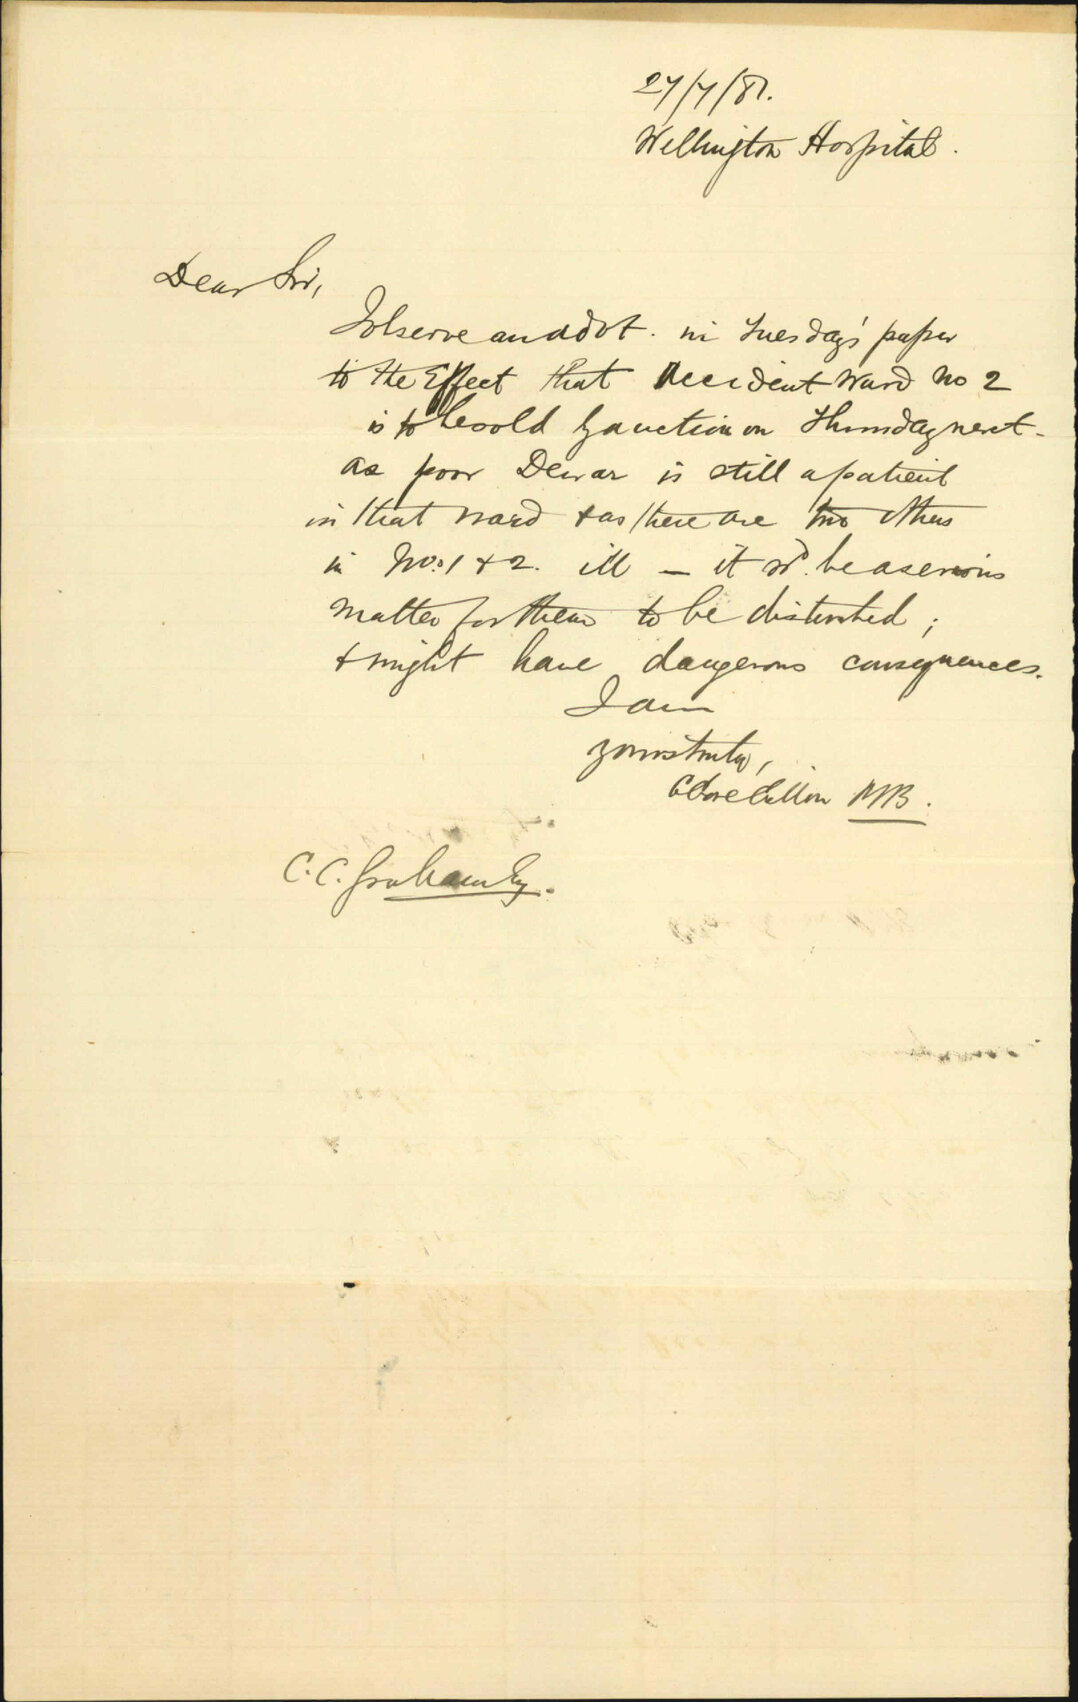 27/7/81.
Wellington Hospital.
Dear Sir,
I observe an advt. in Tuesday's paper
to the Effect that Accident Ward No 2
is to be sold by auction on Thursday next -
as poor Dewar is still a patient
in that ward & as there are two others
in No. 1 & 2. ill – it wd. be a serious
matter for them to be disturbed;
& might have dangerous consequences.
I am
yours truly,
MB.
C. C. Graham Esq.